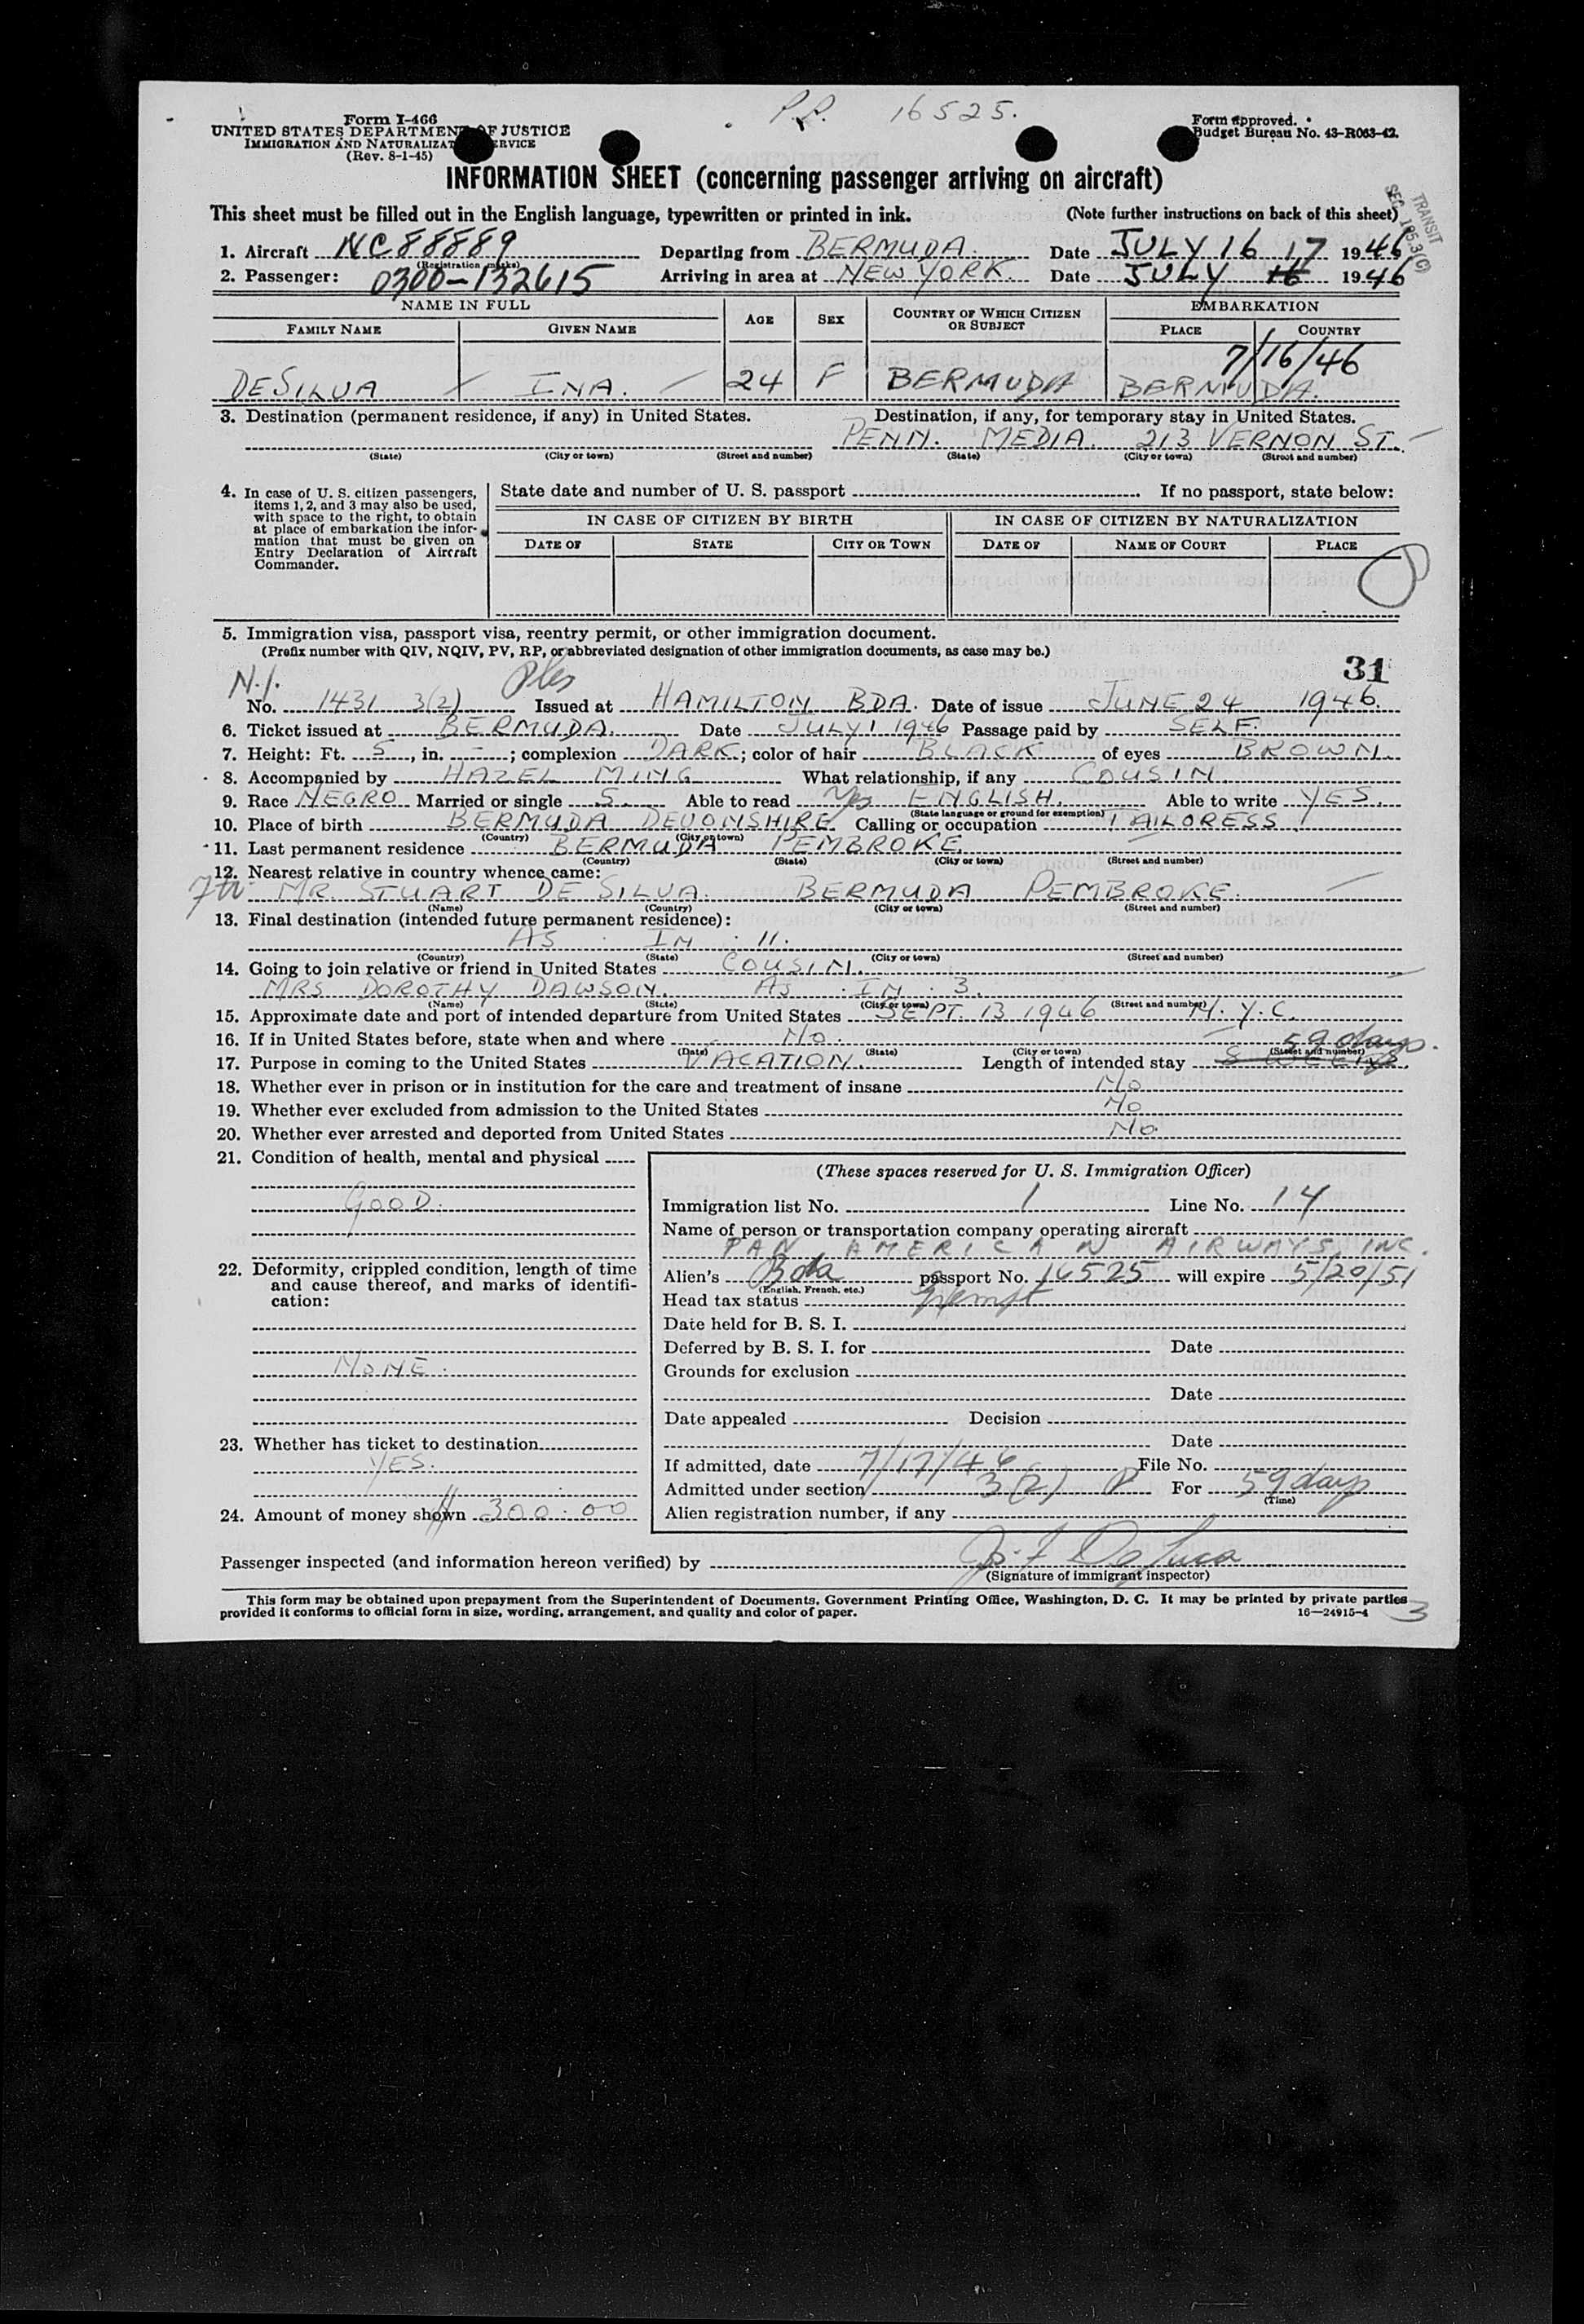 P.P. 16525.
Form I-466
UNITED STATES DEPARTMENT OF JUSTICE
IMMIGRATION AND NATURALIZATION SERVICE
(Rev. 8-1-45)
Form approved.
Budget Bureau No. 43-R063-42.
INFORMATION SHEET (concerning passenger arriving on aircraft)
TRANSIT
SEC. 105.3(C)
This sheet must be filled out in the English language, typewritten or printed in ink. (Note further instructions on back of this sheet)
1. Aircraft NC88889 Departing from BERMUDA. Date JULY 16 1946
(Registration marks)
17
2. Passenger: 0300-132615 Arriving in area at NEW YORK. Date JULY 16 1946
NAME IN FULL AGE SEX COUNTRY OF WHICH CITIZEN OR SUBJECT EMBARKATION
FAMILY NAME GIVEN NAME PLACE COUNTRY
7/16/46
DESILVA INA. 24 F BERMUDA BERMUDA.
3. Destination (permanent residence, if any) in United States. Destination, if any, for temporary stay in United States.
PENN. MEDIA. 213 VERNON ST.
(State) (City or town) (Street and number) (State) (City or town) (Street and number)
4. In case of U. S. citizen passengers, items 1, 2, and 3 may also be used, with space to the right, to obtain at place of embarkation the information that must be given on Entry Declaration of Aircraft Commander.
State date and number of U. S. passport If no passport, state below:
IN CASE OF CITIZEN BY BIRTH IN CASE OF CITIZEN BY NATURALIZATION
DATE OF STATE CITY OR TOWN DATE OF NAME OF COURT PLACE
5. Immigration visa, passport visa, reentry permit, or other immigration document.
(Prefix number with QIV, NQIV, PV, RP, or abbreviated designation of other immigration documents, as case may be.)
31
N.I.
No. 1431 3(2) Issued at HAMILTON BDA. Date of issue JUNE 24 1946.
6. Ticket issued at BERMUDA. Date JULY 1 1946 Passage paid by SELF.
7. Height: Ft. 5, in. -; complexion DARK; color of hair BLACK of eyes BROWN.
8. Accompanied by HAZEL MING What relationship, if any COUSIN
9. Race NEGRO Married or single S. Able to read Yes ENGLISH. Able to write YES.
(State language or ground for exemption)
10. Place of birth BERMUDA DEVONSHIRE Calling or occupation TAILORESS
(Country) (City or town)
11. Last permanent residence BERMUDA PEMBROKE.
(Country) (State) (City or town) (Street and number)
12. Nearest relative in country whence came:
MR. STUART DE SILVA. BERMUDA PEMBROKE.
(Name) (Country) (City or town) (Street and number)
13. Final destination (intended future permanent residence):
AS IN 11.
(Country) (State) (City or town) (Street and number)
14. Going to join relative or friend in United States COUSIN.
MRS DOROTHY DAWSON. AS IN 3.
(Name) (State) (City or town) (Street and number)
15. Approximate date and port of intended departure from United States SEPT. 13 1946 N.Y.C.
16. If in United States before, state when and where No.
(Date) (State) (City or town) (Street and number)
59 days.
17. Purpose in coming to the United States VACATION. Length of intended stay 8 WEEKS
18. Whether ever in prison or in institution for the care and treatment of insane No
19. Whether ever excluded from admission to the United States No
20. Whether ever arrested and deported from United States No
21. Condition of health, mental and physical
GOOD.
22. Deformity, crippled condition, length of time and cause thereof, and marks of identification:
NONE.
23. Whether has ticket to destination
YES.
24. Amount of money shown $300.00
(These spaces reserved for U. S. Immigration Officer)
Immigration list No. 1 Line No. 14
Name of person or transportation company operating aircraft
PAN AMERICAN AIRWAYS, INC.
Alien's Bda passport No. 16525 will expire 5/20/51
(English, French, etc.)
Head tax status Exempt
Date held for B. S. I.
Deferred by B. S. I. for Date
Grounds for exclusion
Date
Date appealed Decision
Date
If admitted, date 7/17/46 File No.
Admitted under section 3(2) P For 59 days
(Time)
Alien registration number, if any
Passenger inspected (and information hereon verified) by
(Signature of immigrant inspector)
This form may be obtained upon prepayment from the Superintendent of Documents, Government Printing Office, Washington, D. C. It may be printed by private parties
provided it conforms to official form in size, wording, arrangement, and quality and color of paper. 16—24915-4
3